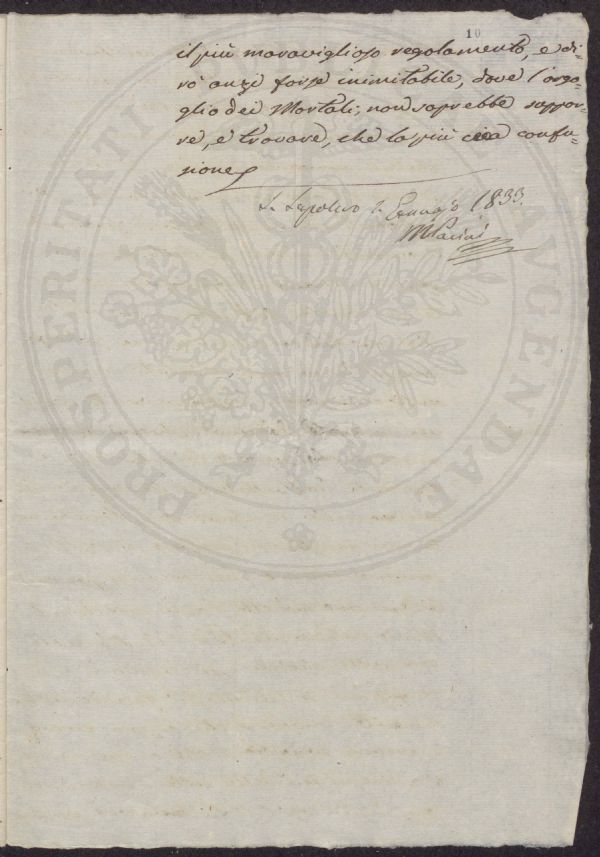 10
il più maraviglioso regolamento, e di-
rò anzi forse inimitabile, dove l'orgo-
glio dei Mortali, non saprebbe suppor-
re, e trovare, che la più cieca confu-
sione
S. Sepolcro 2. Gennajo 1833.
M Pacini
PROSPERITATI AUGENDAE